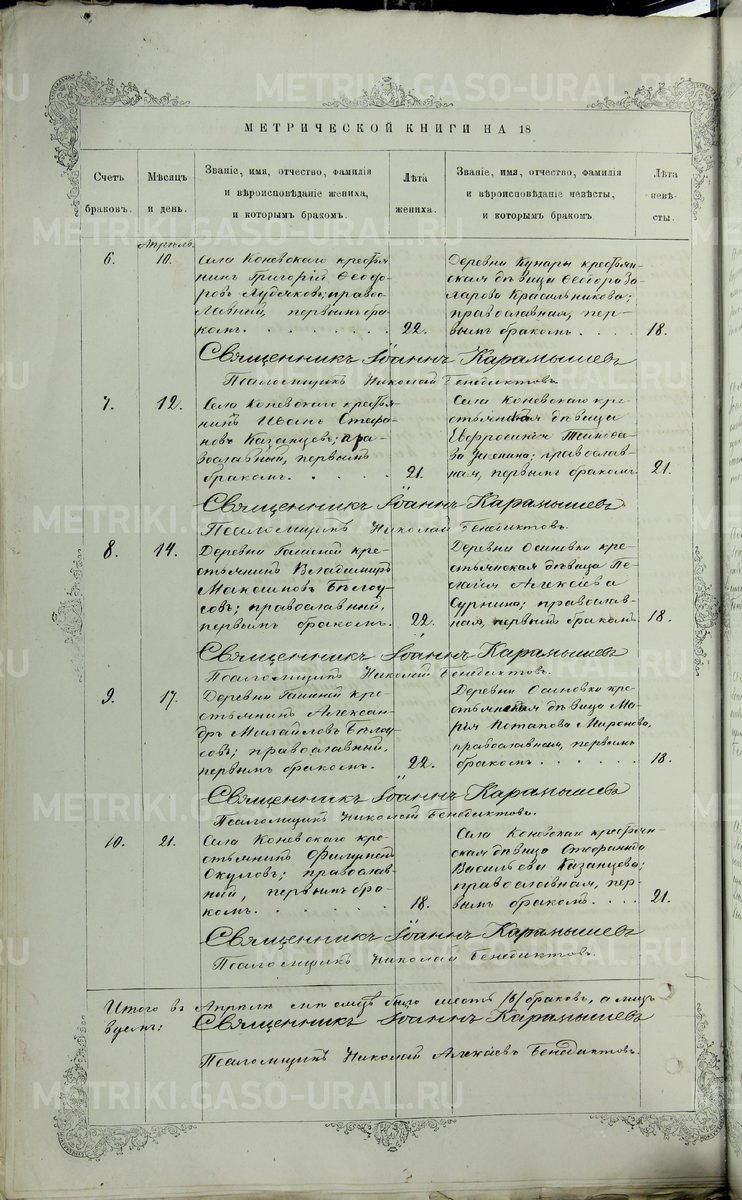 МЕТРИЧЕСКОЙ КНИГИ НА 18
Счетъ браковъ.
Мѣсяцъ и день.
Званіе, имя, отчество, фамилія
и вѣроисповѣданіе жениха,
и которымъ бракомъ.
Лѣта жениха.
Званіе, имя, отчество, фамилія
и вѣроисповѣданіе невѣсты,
и которымъ бракомъ
Лѣта невѣ-
сты.
Апрѣль.
6.
10.
Села Коневскаго крестья
нинъ Григорій Ѳеодо-
ровъ; правос-
лавный, первымъ бра-
комъ.
22.
Деревни Кунары крестьян-
ская дѣвица Ѳеодора За-
харова Красильникова;
православная, пер-
вымъ бракомъ.
18.
Священникъ Іоаннъ Карамышевъ
Псаломщикъ Николай Бенедиктовъ.
7.
12.
Села Коневскаго крестья
нинъ Иванъ Стефа-
новъ Казанцевъ; пра-
вославный, первымъ
бракомъ.
21.
Села Коневскаго кре-
стьянская дѣвица
православ-
ная, первымъ бракомъ
21.
Священникъ Іоаннъ Карамышевъ
Псаломщикъ Николай Бенедиктовъ.
8.
14.
Деревни кре-
стьянинъ Владимиръ
Бѣлоу-
совъ; православный,
первымъ бракомъ.
22.
Деревни Осиновки кре-
стьянская дѣвица Пе-
лагія Алексѣева
православ-
ная, первымъ бракомъ
18.
Священникъ Іоаннъ Карамышевъ
Псаломщикъ Николай Бенедиктовъ.
9.
17.
Деревни кре-
стьянинъ Алексан-
дръ Михайловъ Бѣлоу-
совъ; православный,
первымъ бракомъ.
22.
Деревни Осиновки кре-
стьянская дѣвица Ма-
рья Потапова Миронова,
православная, первымъ
бракомъ.
18.
Священникъ Іоаннъ Карамышевъ
Псаломщикъ Николай Бенедиктовъ.
10.
21.
Села Коневскаго кре-
стьянинъ
Окуловъ; православ-
ный, первымъ бра-
комъ.
18.
Села Коневскаго крестьян-
ская дѣвица Стефанида
Васильева Казанцева;
православная, пер-
вымъ бракомъ.
21.
Священникъ Іоаннъ Карамышевъ
Псаломщикъ Николай Бенедиктовъ.
Итого въ Апрѣлѣ было шесть /6/ браковъ, а лицъ
Священникъ Іоаннъ Карамышевъ
Псаломщикъ Николай Алексѣевъ Бенедиктовъ.
METRIKI.GASO-URAL.RU